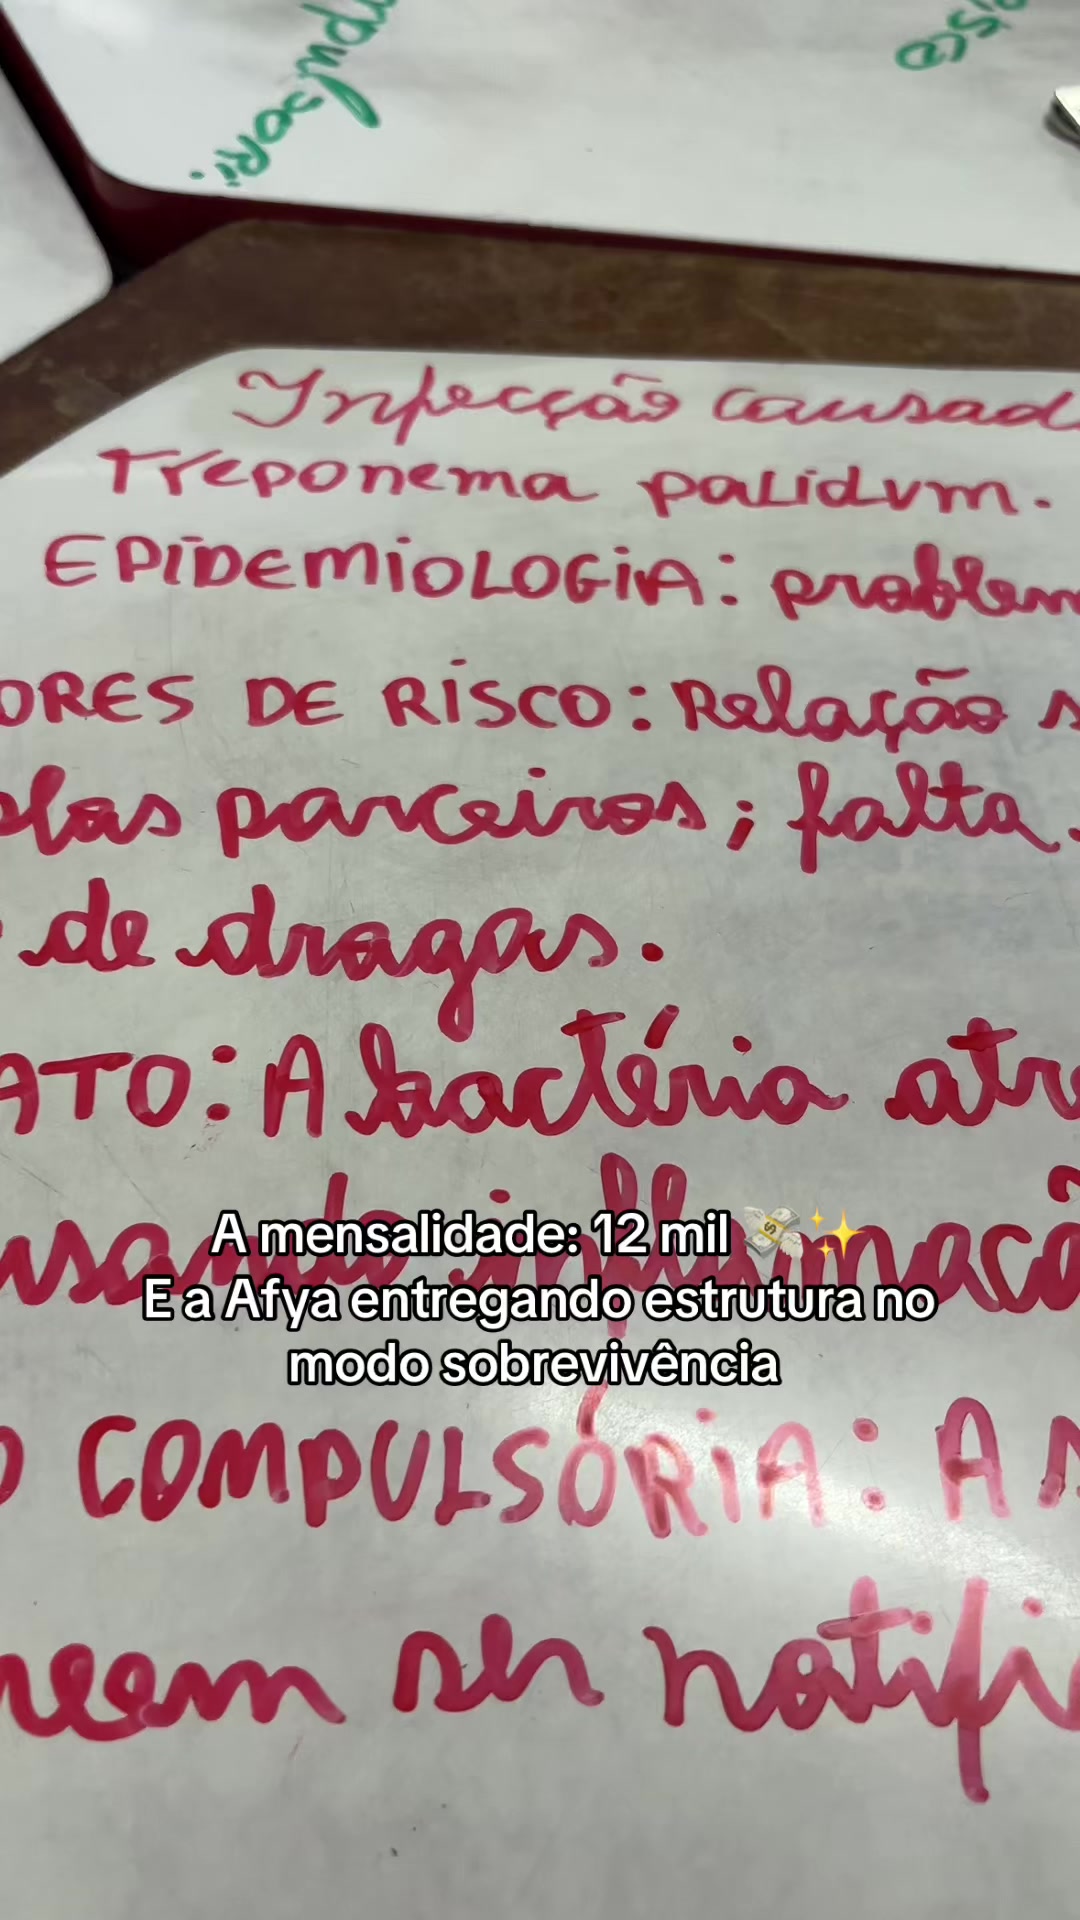 Infecção causad
Treponema palidum.
EPIDEMIOLOGIA: problem
ORES DE RISCO: Relação s
plas parceiros; falta
de drogas.
ATO: A bactéria atr
usando inflamaçã
A mensalidade: 12 mil 💸✨
E a Afya entregando estrutura no
modo sobrevivência
O COMPULSÓRIA: A s
ser notifi